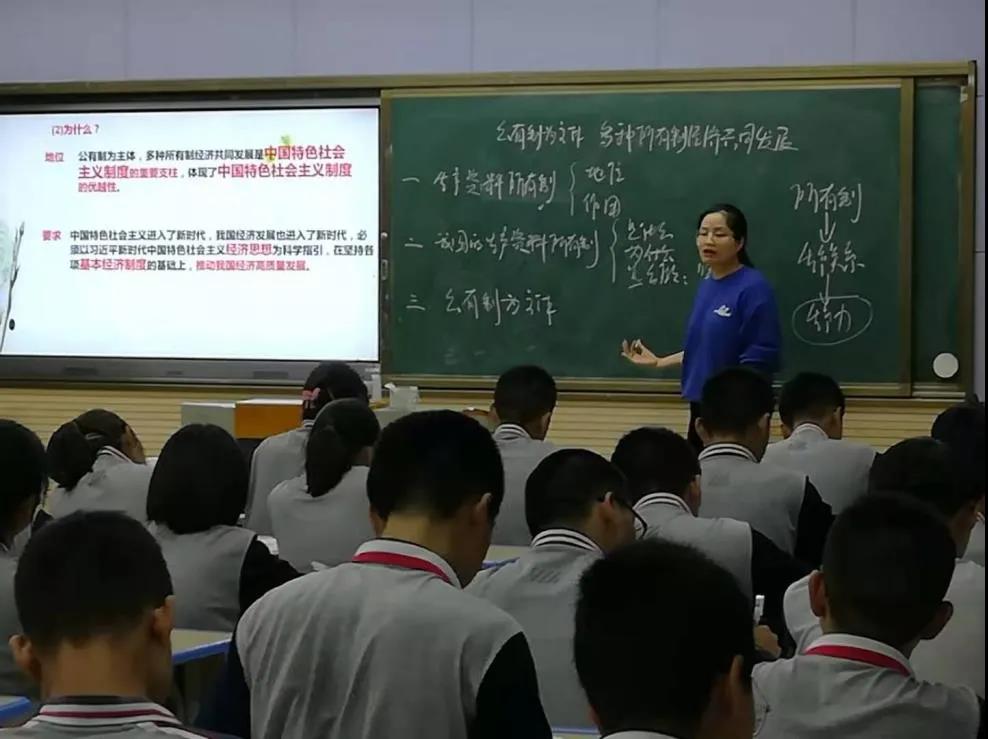 (2)为什么？
地位 公有制为主体，多种所有制经济共同发展是中国特色社会
主义制度的重要支柱，体现了中国特色社会主义制度
的优越性。
要求 中国特色社会主义进入了新时代，我国经济发展也进入了新时代，必
须以习近平新时代中国特色社会主义经济思想为科学指引，在坚持各
项基本经济制度的基础上，推动我国经济高质量发展。
公有制为主体 多种所有制经济共同发展
一 生产资料所有制
地位
作用
二 我国的生产资料所有制
是什么
为什么
怎么做：
三 公有制为主体
所有制
生产关系
生产力